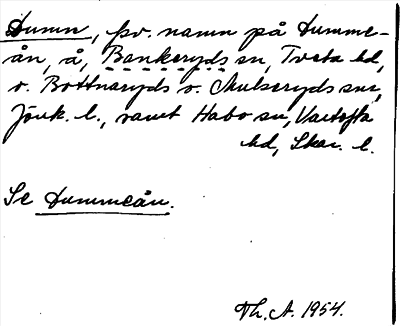 Dumn, fsv. namn på Dumme-
ån, å, Bankeryds sn, Tveta hd,
o. Bottnaryds o. Mulseryds snr,
Jönk. l., samt Habo sn, Vartofta
hd, Skar. l.
Se Dummeån.
Th. A. 1954.